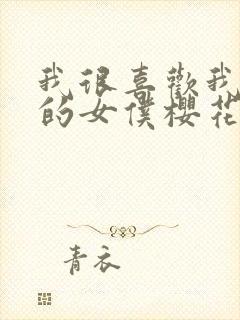 我很喜歡我
的女僕櫻花
青衣